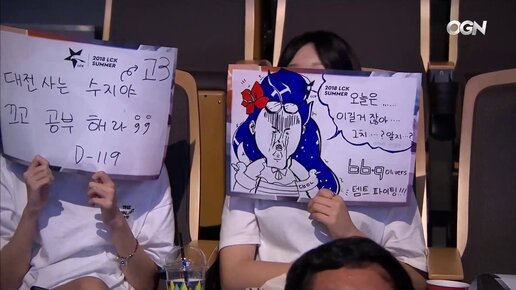 OGN
2018 LCK
SUMMER
LCK
고3
대전 사는 수지야
끄고 공부 해라 ㅠㅠ
D-119
2018 LCK
SUMMER
오늘은 ......
이길거 잖아 ....
그치...? 맞지...?
bbq
OLIVERS
템트 파이팅!!!